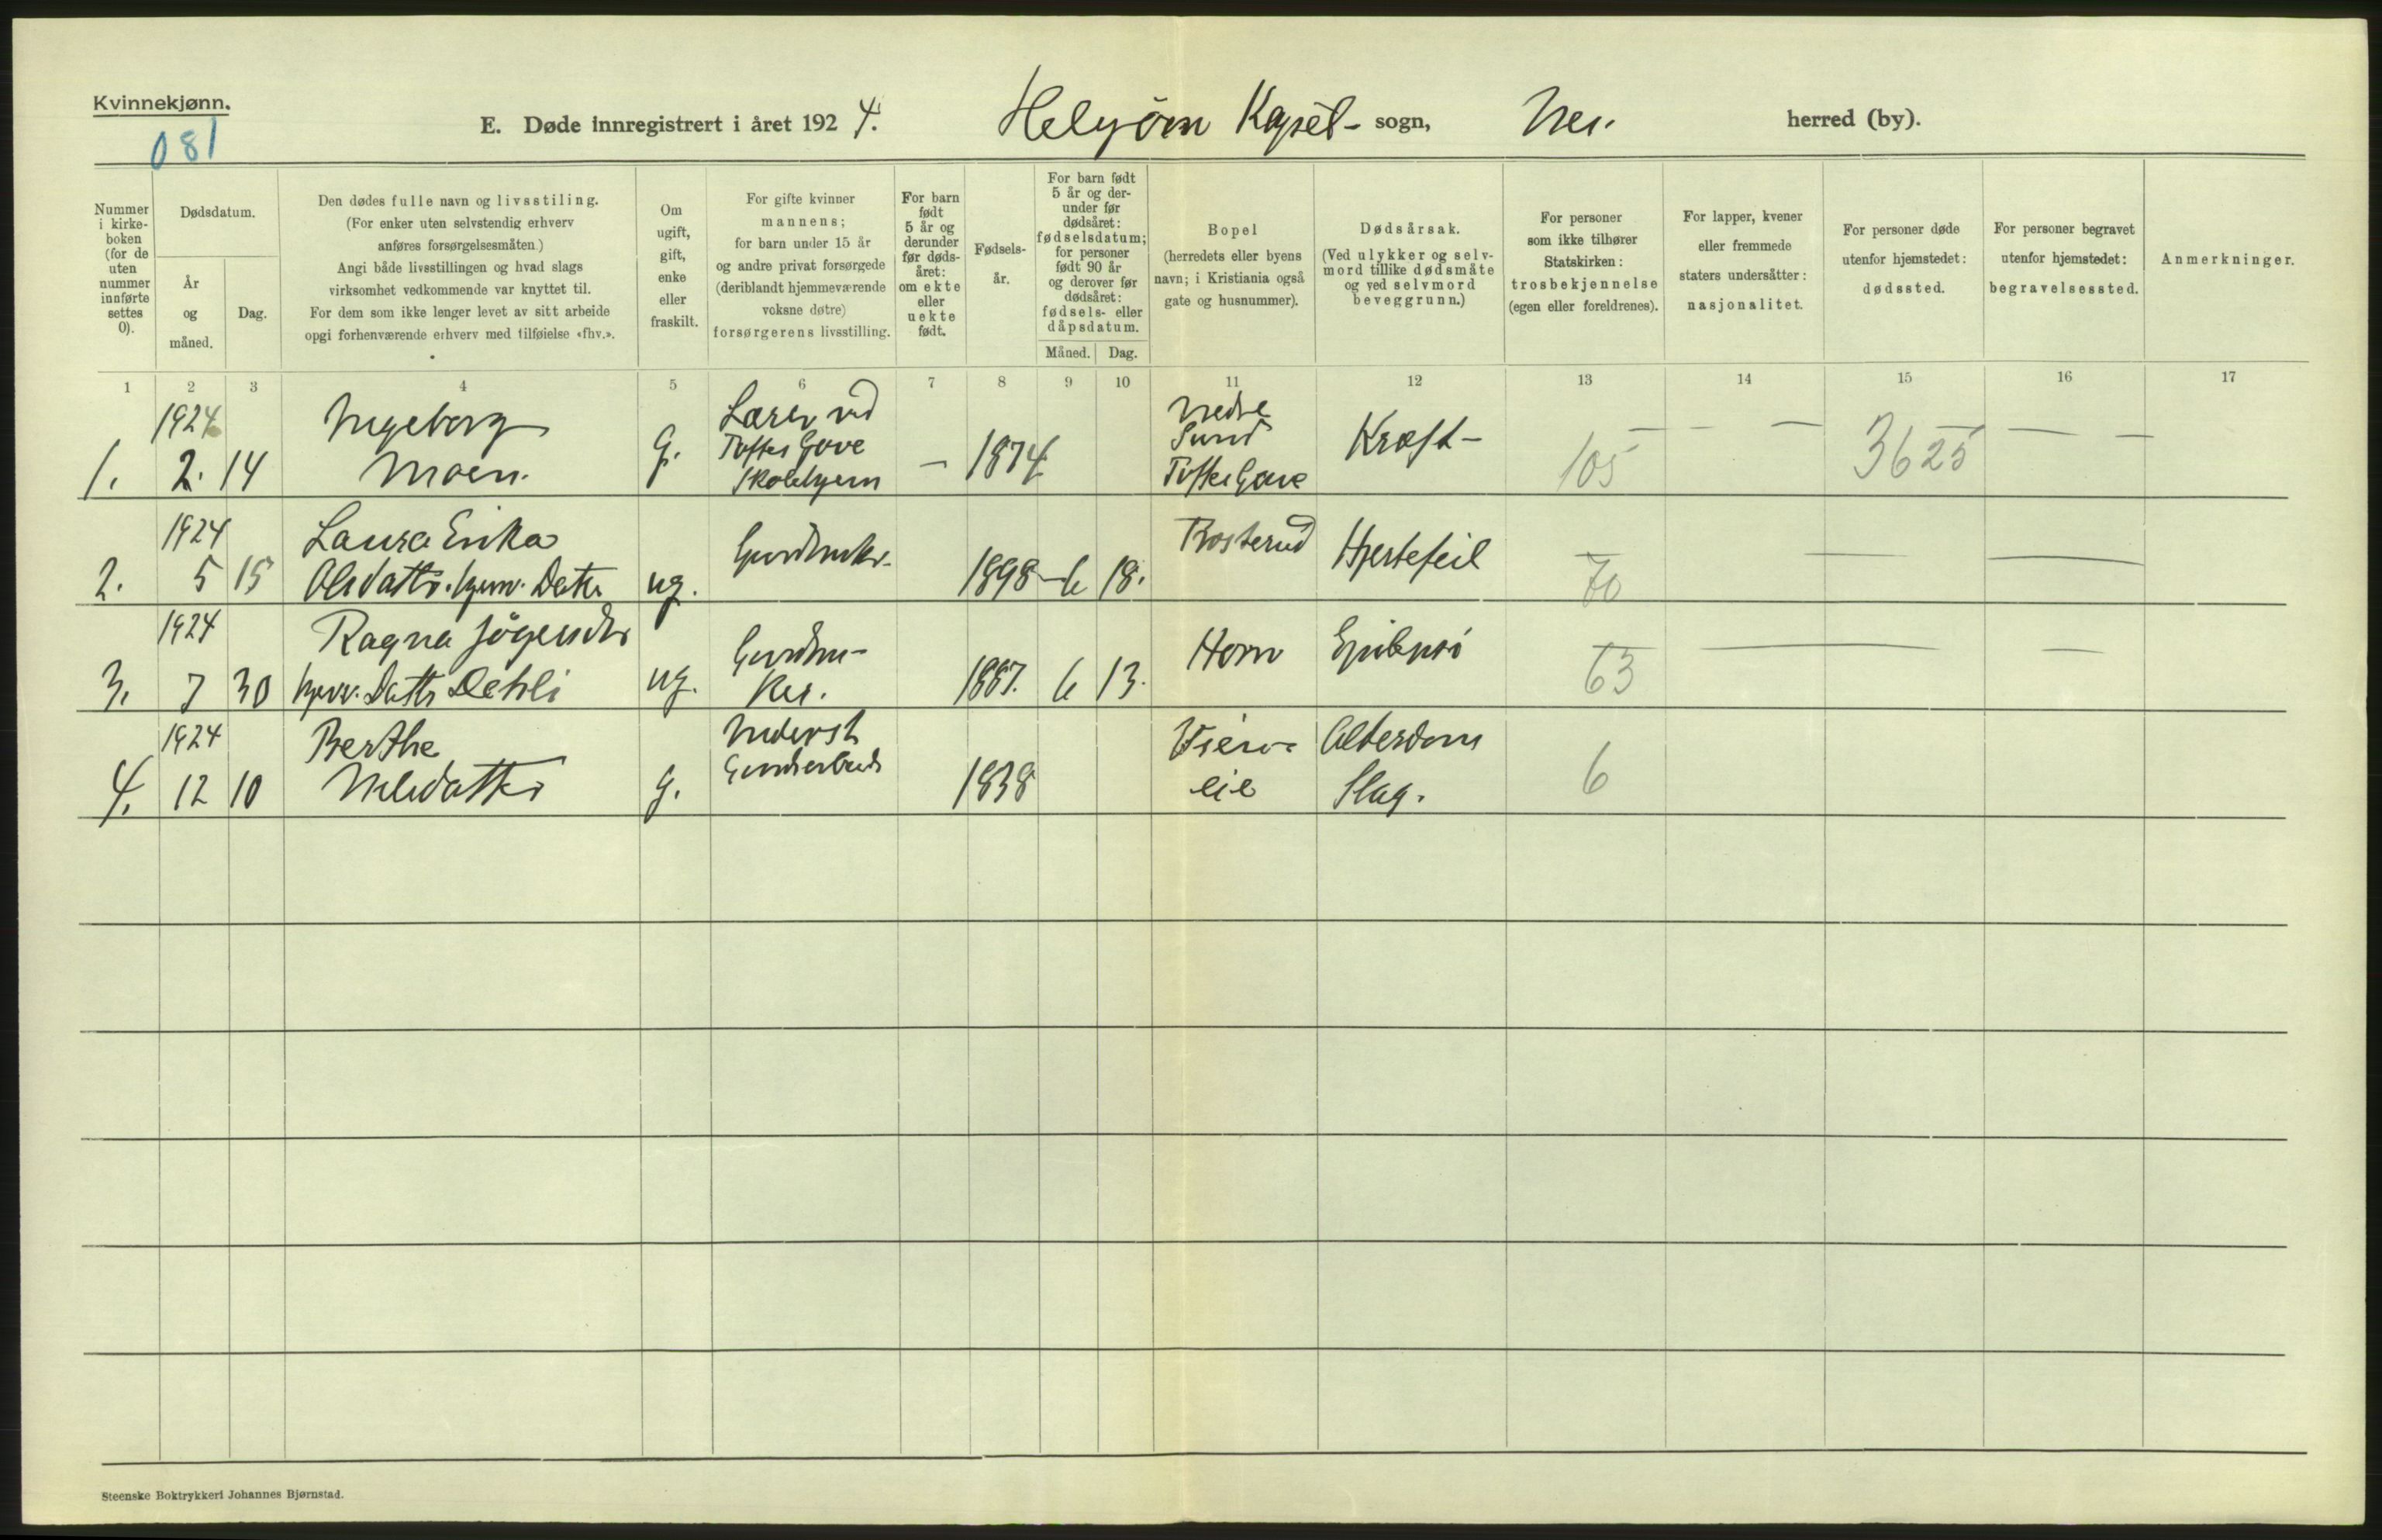 Kvinnekjønn.
081
E. Døde innregistrert i året 1924. Helgøen Kapel- sogn, Nes. herred (by).
Nummer i kirke-boken (for de uten nummer innførte settes 0).
Dødsdatum.
År og måned.
Dag.
Den dødes fulle navn og livsstiling.
(For enker uten selvstendig erhverv
anføres forsørgelsesmåten)
Angi både livsstillingen og hvad slags
virksomhet vedkommende var knyttet til.
For dem som ikke lenger levet av sitt arbeide
opgi forhenværende erhverv med tilføielse «fhv.».
Om ugift, gift, enke eller fraskilt.
For gifte kvinner
mannens;
for barn under 15 år
og andre privat forsørgede
(deriblandt hjemmeværende
voksne døtre)
forsørgerens livsstilling.
For barn født 5 år og derunder før døds-året: om ekte eller uekte født.
Fødsels-år.
For barn født 5 år og der-under før dødsåret: fødselsdatum; for personer født 90 år og derover før dødsåret: fødsels- eller dåpsdatum.
Måned. Dag.
Bopel
(herredets eller byens
navn; i Kristiania også
gate og husnummer).
Dødsårsak.
(Ved ulykker og selv-
mord tillike dødsmåte
og ved selvmord
beveggrunn.)
For personer
som ikke tilhører
Statskirken:
trosbekjennelse
(egen eller foreldrenes).
For lapper, kvener
eller fremmede
staters undersåtter:
nasjonalitet.
For personer døde
utenfor hjemstedet:
dødssted.
For personer begravet
utenfor hjemstedet:
begravelsessted.
Anmerkninger.
1 2 3 4 5 6 7 8 9 10 11 12 13 14 15 16 17
1924 Ingeborg Lærer ved Nedre
Toftes Gave Sund Kræft - — - — —
1. 2. 14 Moen. g. Skolehjem — 1874 Toftes Gave 105 3625
1924 Laura Erika Gårdbruker Rosterud Hjertefeil
2. 5 15 Olsdatter. hjemv. Datter ug. 1898 6 18. 70
1924 Ragna Jörgensdtr Gårdbru- Horn Epilepsi
3. 7 30 hjemv. Datter Dehli ug. ker. 1887. 6 13. 63
1924 Berthe Alderdoms
4. 12 10 Nilsdatter g. 1838 eie Slag. 6
Steenske Boktrykkeri Johannes Bjørnstad.